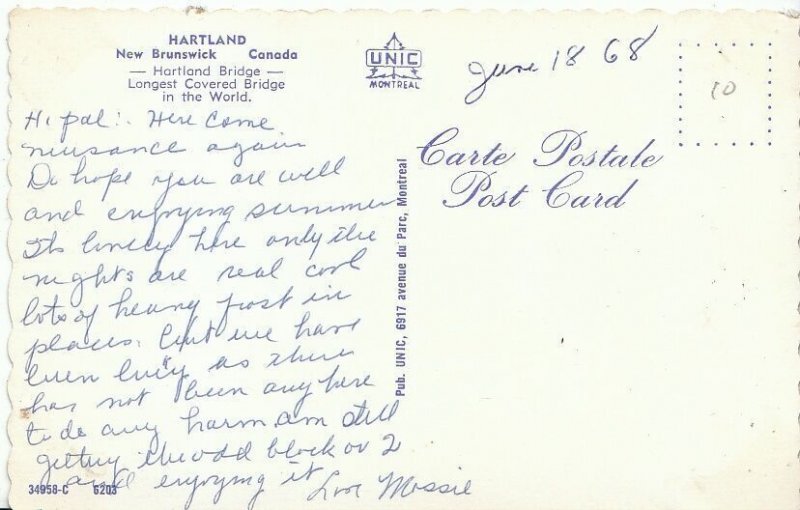 HARTLAND
New Brunswick Canada
— Hartland Bridge —
Longest Covered Bridge
in the World.
UNIC
MONTREAL
June 18 68
10
Carte Postale
Post Card
Hi pal:. Here come
nuisance again
Do hope you are well
and enjoying summer
Its lovely here only the
nights are real cool
lots of heavy frost in
places. but we have
been lucky as there
has not been any here
to do any harm. am still
getting the odd block or 2
and enjoying it
Love Mossie
Pub. UNIC, 6917 avenue du Parc, Montreal
34958-C 6203